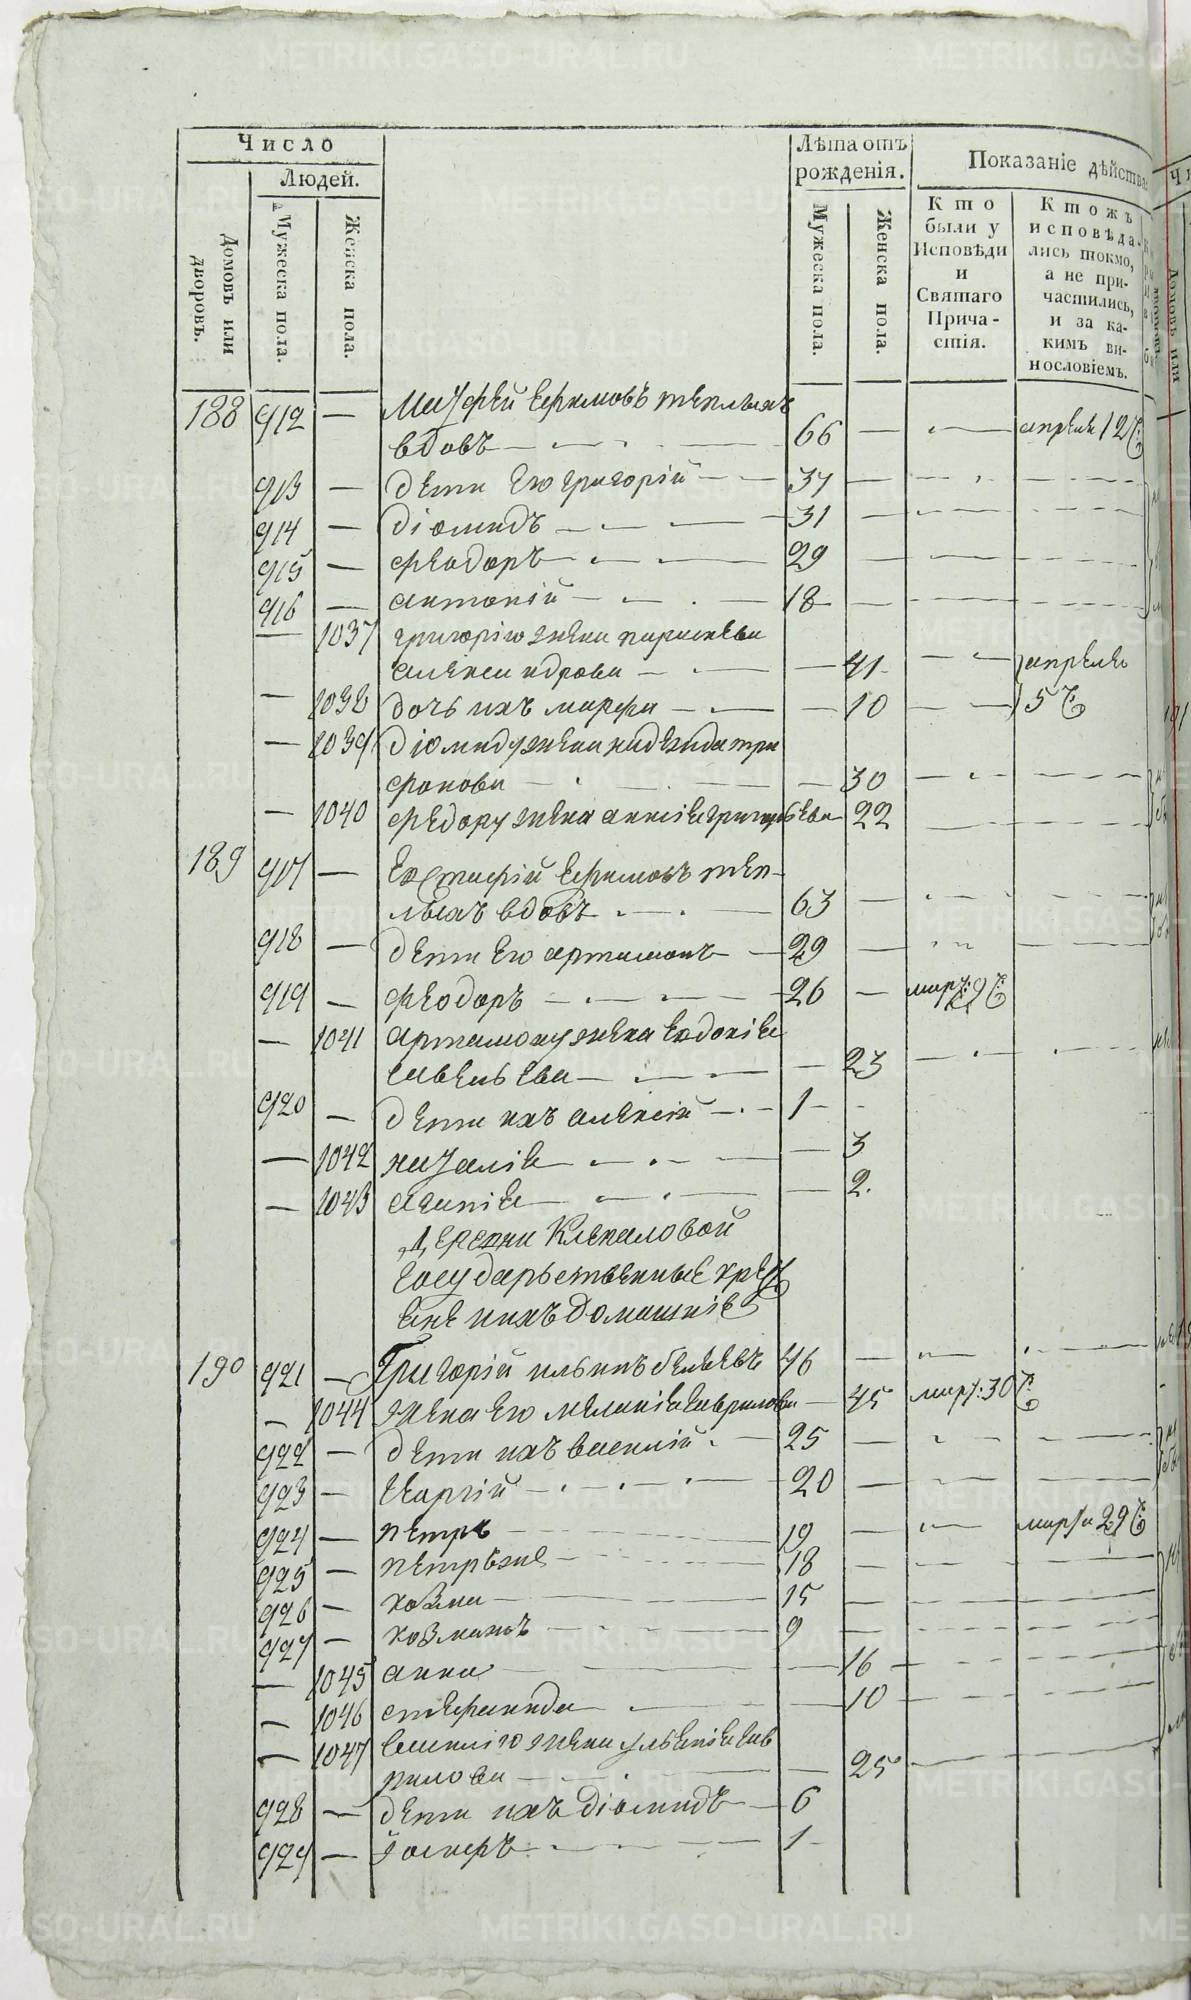 Число
Лѣта отъ рожденія.
Показаніе дѣйства
Людей.
Домовъ или дворовъ.
Мужеска пола.
Женска пола.
Мужеска пола.
Женска пола.
Кто были у Исповѣди и Святаго Причастія.
Ктожъ исповѣдались токмо, а не причастились, и за какимъ винословіемъ.
188 912 — Матфей Ефимовъ теплыхъ
вдовъ 66 — апреля 12
913 — дети его григорій 37
914 — діомидъ 31
915 — феодоръ 29
916 — антоній 18
— 1037 григорію жена параскева
александрова — 41 апреля
— 1038 дочь ихъ марфа — 10 15
— 1039 діомиду жена надежда три
фонова — 30
— 1040 федору жена анисіа григорьева 22
189 917 — Евстафій Ефимовъ теп
лыхъ вдовъ 63
918 — дети его артамонъ 29
919 — феодоръ 26 — мар: 29
— 1041 артамону жена Евдокіа
савельева — 23
920 — дети ихъ алексій 1
— 1042 наталіа — 3
— 1043 агапіа — 2.
Деревни Клепаловой
Государьственные крест
яне и ихъ домашніе
190 921 — Григорій ильинъ белыевъ 46
— 1044 жена его меланіа гаврилова — 45 март: 30
922 — дети ихъ василій 25
923 — Георгій 20
924 — петръ 19 марта 29
925 — петръже 18
926 — козма 15
927 — козманъ 9
— 1045 анна — 16
— 1046 стефанида — 10
— 1047 василію жена ульяніа гав
рилова — 25
928 — дети ихъ діомидъ 6
929 — Іосифъ 1
METRIKI.GASO-URAL.RU